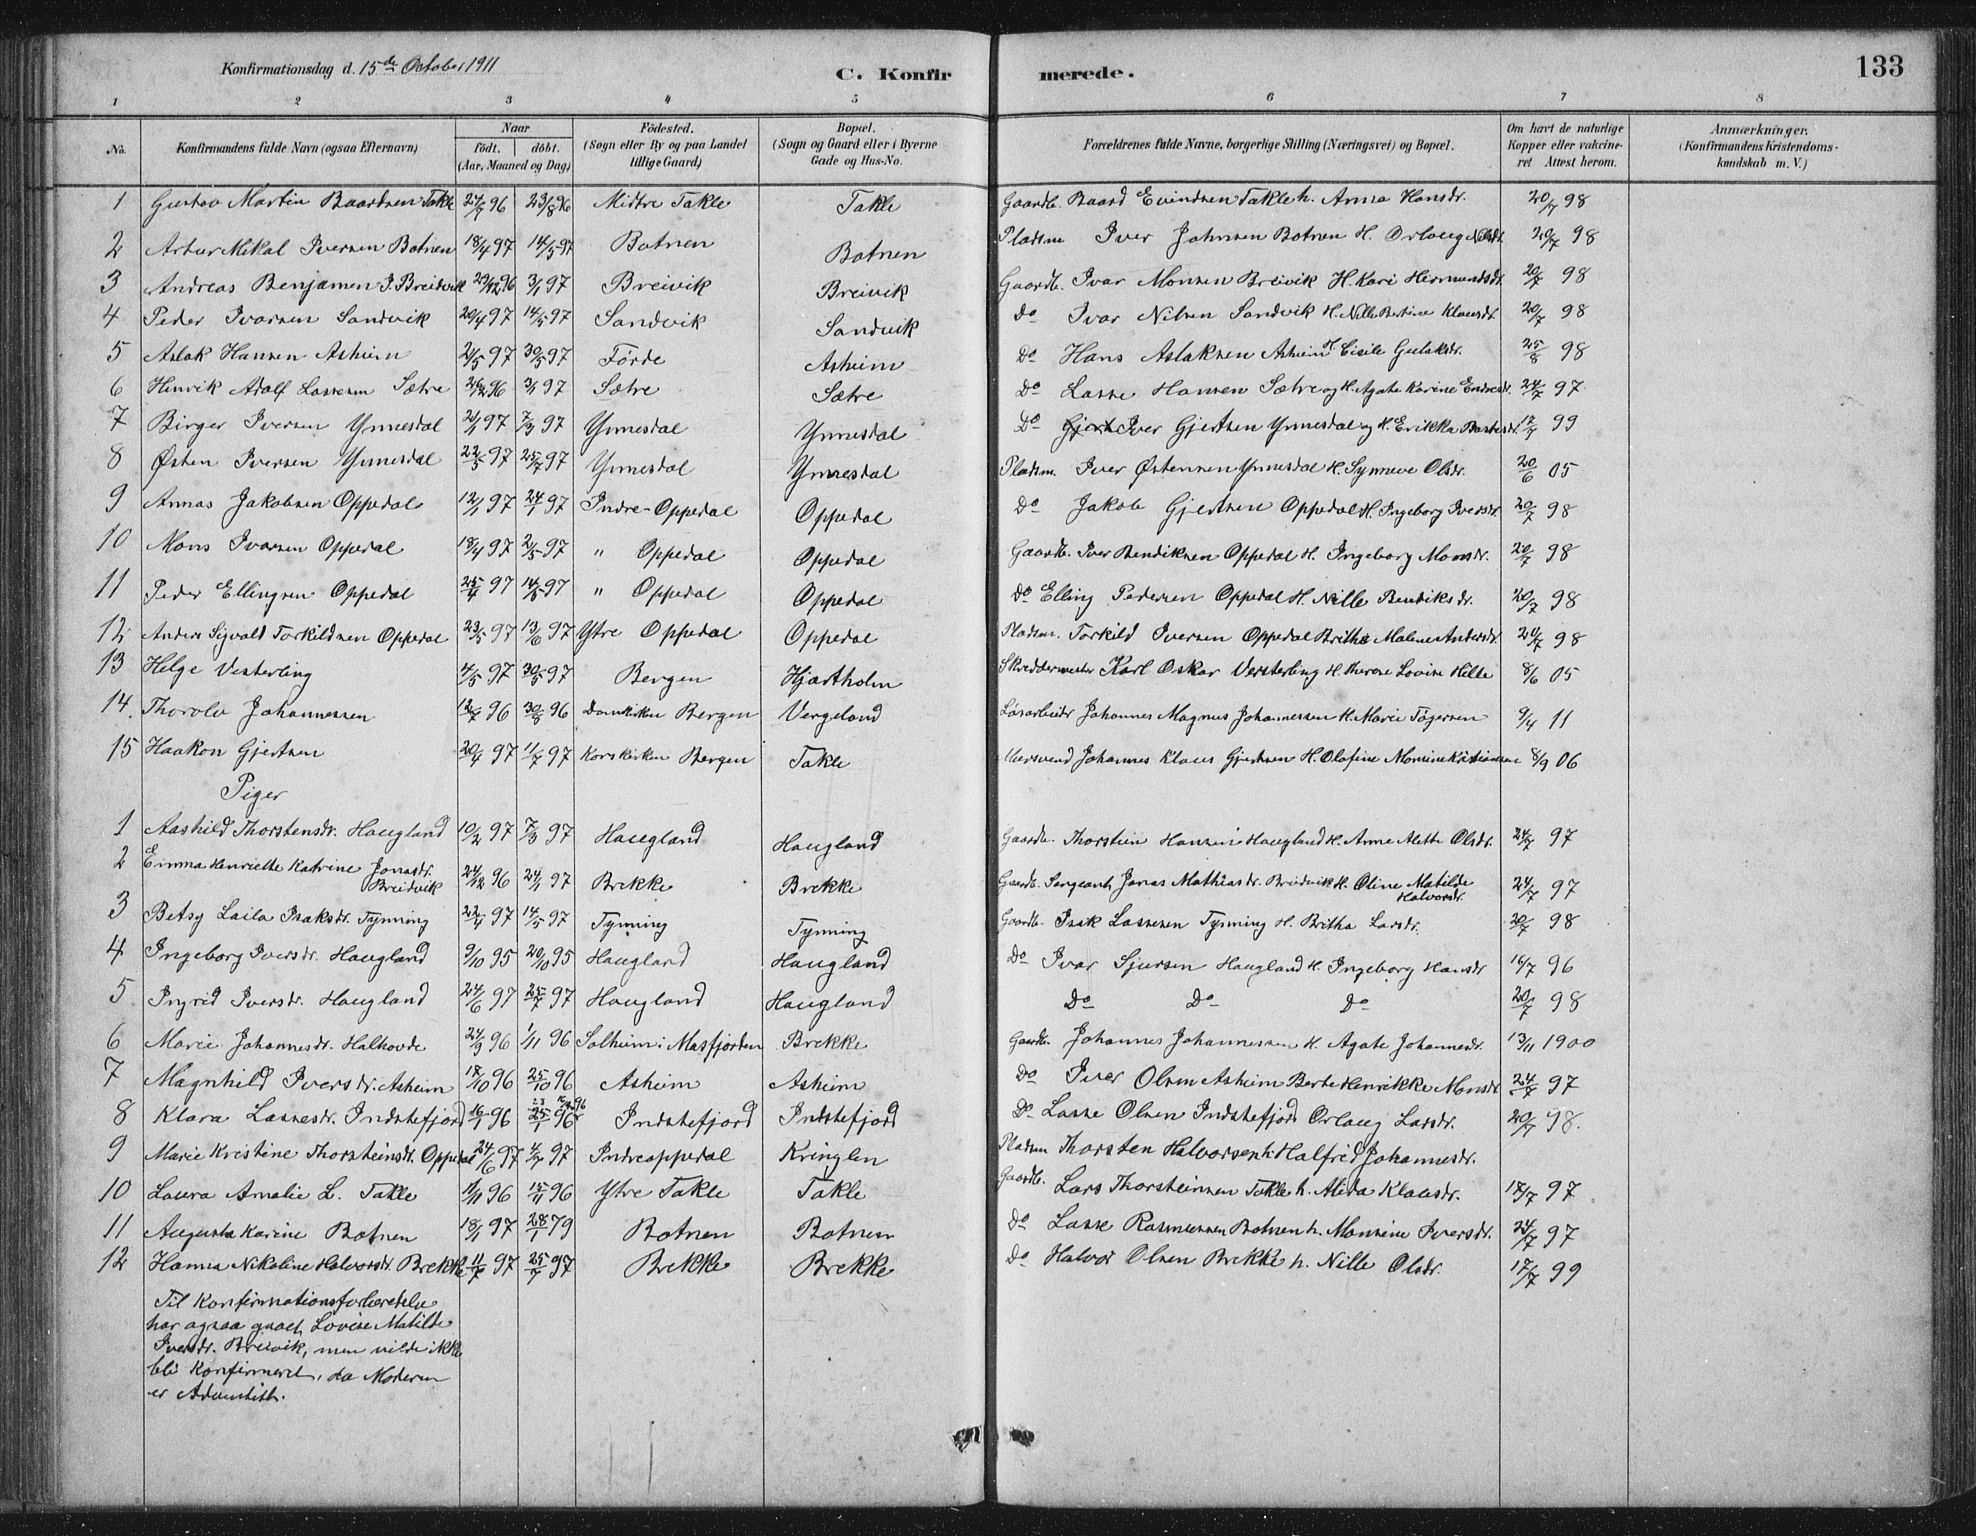 Konfirmationsdag d. 15de October 1911
C. Konfirmerede.
133
1 2 3 4 5 6 7 8
No.
Konfirmandens fulde Navn (ogsaa Efternavn)
Naar
født. døbt.
(Aar, Maaned og Dag)
Födested.
(Sogn eller By og paa Landet
tillige Gaard)
Bopæl.
(Sogn og Gaard eller i Byerne
Gade og Hus-No.
Forældrenes fulde Navne, borgerlige Stilling (Næringsvei) og Bopæl.
Om havt de naturlige
Kopper eller vakcine-
ret Attest herom.
Anmærkninger.
(Konfirmandens Kristendoms-
kundskab m. V.)
1 Gustav Martin Baardsen Takle 96 23/8 96 Midtre Takle Takle Gaardb. Baard Evindsen Takle h. Anna Hansdr. 20/7 98
2 Artur Mikal Iversen Botnen 18/4 97 14/5 97 Botnen Botnen Pladsm Iver Johnsen Botnen H. Orlaug Nilsdr. 20/7 98
3 Andreas Benjamen I. Breidvik 29/12 96 3/1 97 Breivik Breivik Gaardb. Ivar Monsen Breivik H. Kari Hermundsdr. 20/7 98
4 Peder Ivarsen Sandvik 20/4 97 14/5 97 Sandvik Sandvik Do Ivar Nilsen Sandvik H. Nille Bertine Klausdr. 20/7 98
5 Aslak Hansen Asheim 2/5 97 30/5 97 Förde Asheim Do Hans Aslaksen Asheim H. Eisile Gulaksdr. 25/8 98
6 Henrik Adolf Lassesen Sætre 96 3/1 97 Sætre Sætre Do Lasse Hansen Sætre og H. Agate Karine Endresdr. 24/7 97
7 Birger Iversen Ynnesdal 2/1 97 7/3 97 Ynnesdal Ynnesdal Do Iver Gjertsen Ynnesdal og H. Erikka 99
8 Østen Iversen Ynnesdal 22/5 97 25/7 97 Ynnesdal Ynnesdal Pladsm. Iver Østensen Ynnesdal H. Synneve Olsdr. 20/6 05
9 Annas Jakobsen Oppedal 12/1 97 24/1 97 Indre-Oppedal Oppedal Do Jakob Gjertsen Oppedal H. Ingeborg Iversdr. 20/7 98
10 Mons Ivarsen Oppedal 18/4 97 2/5 97 " Oppedal Oppedal Gaardb. Iver Bendiksen Oppedal H. Ingeborg Monsdr. 20/7 98
11 Peder Ellingsen Oppedal 25/4 97 14/5 97 " Oppedal Oppedal Do Elling Pedersen Oppedal H. Nille Bendiksdr. 20/7 98
12 Anders Sigvald Torkildsen Oppedal 23/5 97 13/6 97 Ytre Oppedal Oppedal Pladsm. Torkild Iversen Oppedal Britha Malene Andersdr. 20/7 98
13 Helge Vesterling 4/5 97 30/5 97 Bergen Hjartholm Skreddermester Karl Oskar Versterling H. Therese Lovise Hille 8/6 05
14. Thorolv Johannessen 12/7 96 30/8 96 Domkirken Bergen Vergeland Løsarbeidr Johannes Magnus Johannessen H. Marie Tögersen 9/4 11
15 Haakon Gjertsen 20/4 97 11/7 97 Korskirken Bergen Takle Johannes Klaus Gjertsen H. Olofine Monsine Kristiansen 8/9 06
Piger
1 Aashild Thorstensdr. Haugland 10/2 97 7/3 97 Haugland Haugland Gaardb. Thorstein Hansen Haugland H. Anne Alette Olsdr. 24/7 97
2 Emma Henriette Katrine Jonasdr.
Breidvik 24/12 96 24/1 97 Brekke Brekke Gaardb. Sergeant Jonas Mathiasdr. Breidvik H. Oline Matilde
Halvorsdr. 24/7 97
3 Betsy Laila Isaksdr. Tynning 22/4 97 14/5 97 Tynning Tynning Gaardb. Isak Lassesen Tynning H. Britha Larsdr. 20/7 98
4 Ingeborg Iversdr. Haugland 9/10 95 20/10 95 Haugland Haugland Do Ivar Sjursen Haugland H. Ingeborg Hansdr 16/7 96
5 Ingrid Iversdr. Haugland 24/6 97 25/7 97 Haugland Haugland Do Do Do 20/7 98
6 Marie Johannesdr. Halhovde 24/9 96 1/11 96 Solheim i Masfjorden Brekke Gaardb. Johannes Johannessen H. Agate Johannesdr. 13/11 1900
7 Magnhild Iversdr. Asheim 18/10 96 25/10 96 Asheim Asheim Do Iver Olsen Asheim Berte Henrikke Monsdr 24/7 97
8 Klara Lassesdr. Indstefjord 96 96 Indstefjord Indstefjord Do Lasse Olsen Indstefjord Orlaug Larsdr. 20/7 98.
9 Marie Kristine Thorsteinsdr. Oppedal 24/6 97 4/7 97 Indreoppedal Kringlen Pladsm Thorsten Halvorsen h. Halfrid Johannesdr.
10 Laura Amalie L. Takle 1/11 96 15/11 96 Ytre Takle Takle Gaardb. Lars Thorsteinsen Takle h. Alida Klausdr. 17/7 97
11 Augusta Karine Botnen 18/1 97 28/1 79 Botnen Botnen Do Lasse Rasmussen Botnen h. Monsine Iversdr. 24/7 97
12 Hanna Nikoline Halvorsdr. Brekke 11/7 97 25/7 97 Brekke Brekke Do Halvor Olsen Brekke h. Nille Olsdr. 17/7 99
Til Konfirmationsforberedelse
har ogsaa gaaet Lovise Matilde
Iversdr. Breivik, men vilde ikke
bli Konfirmeret, da Moderen
er Adventist.